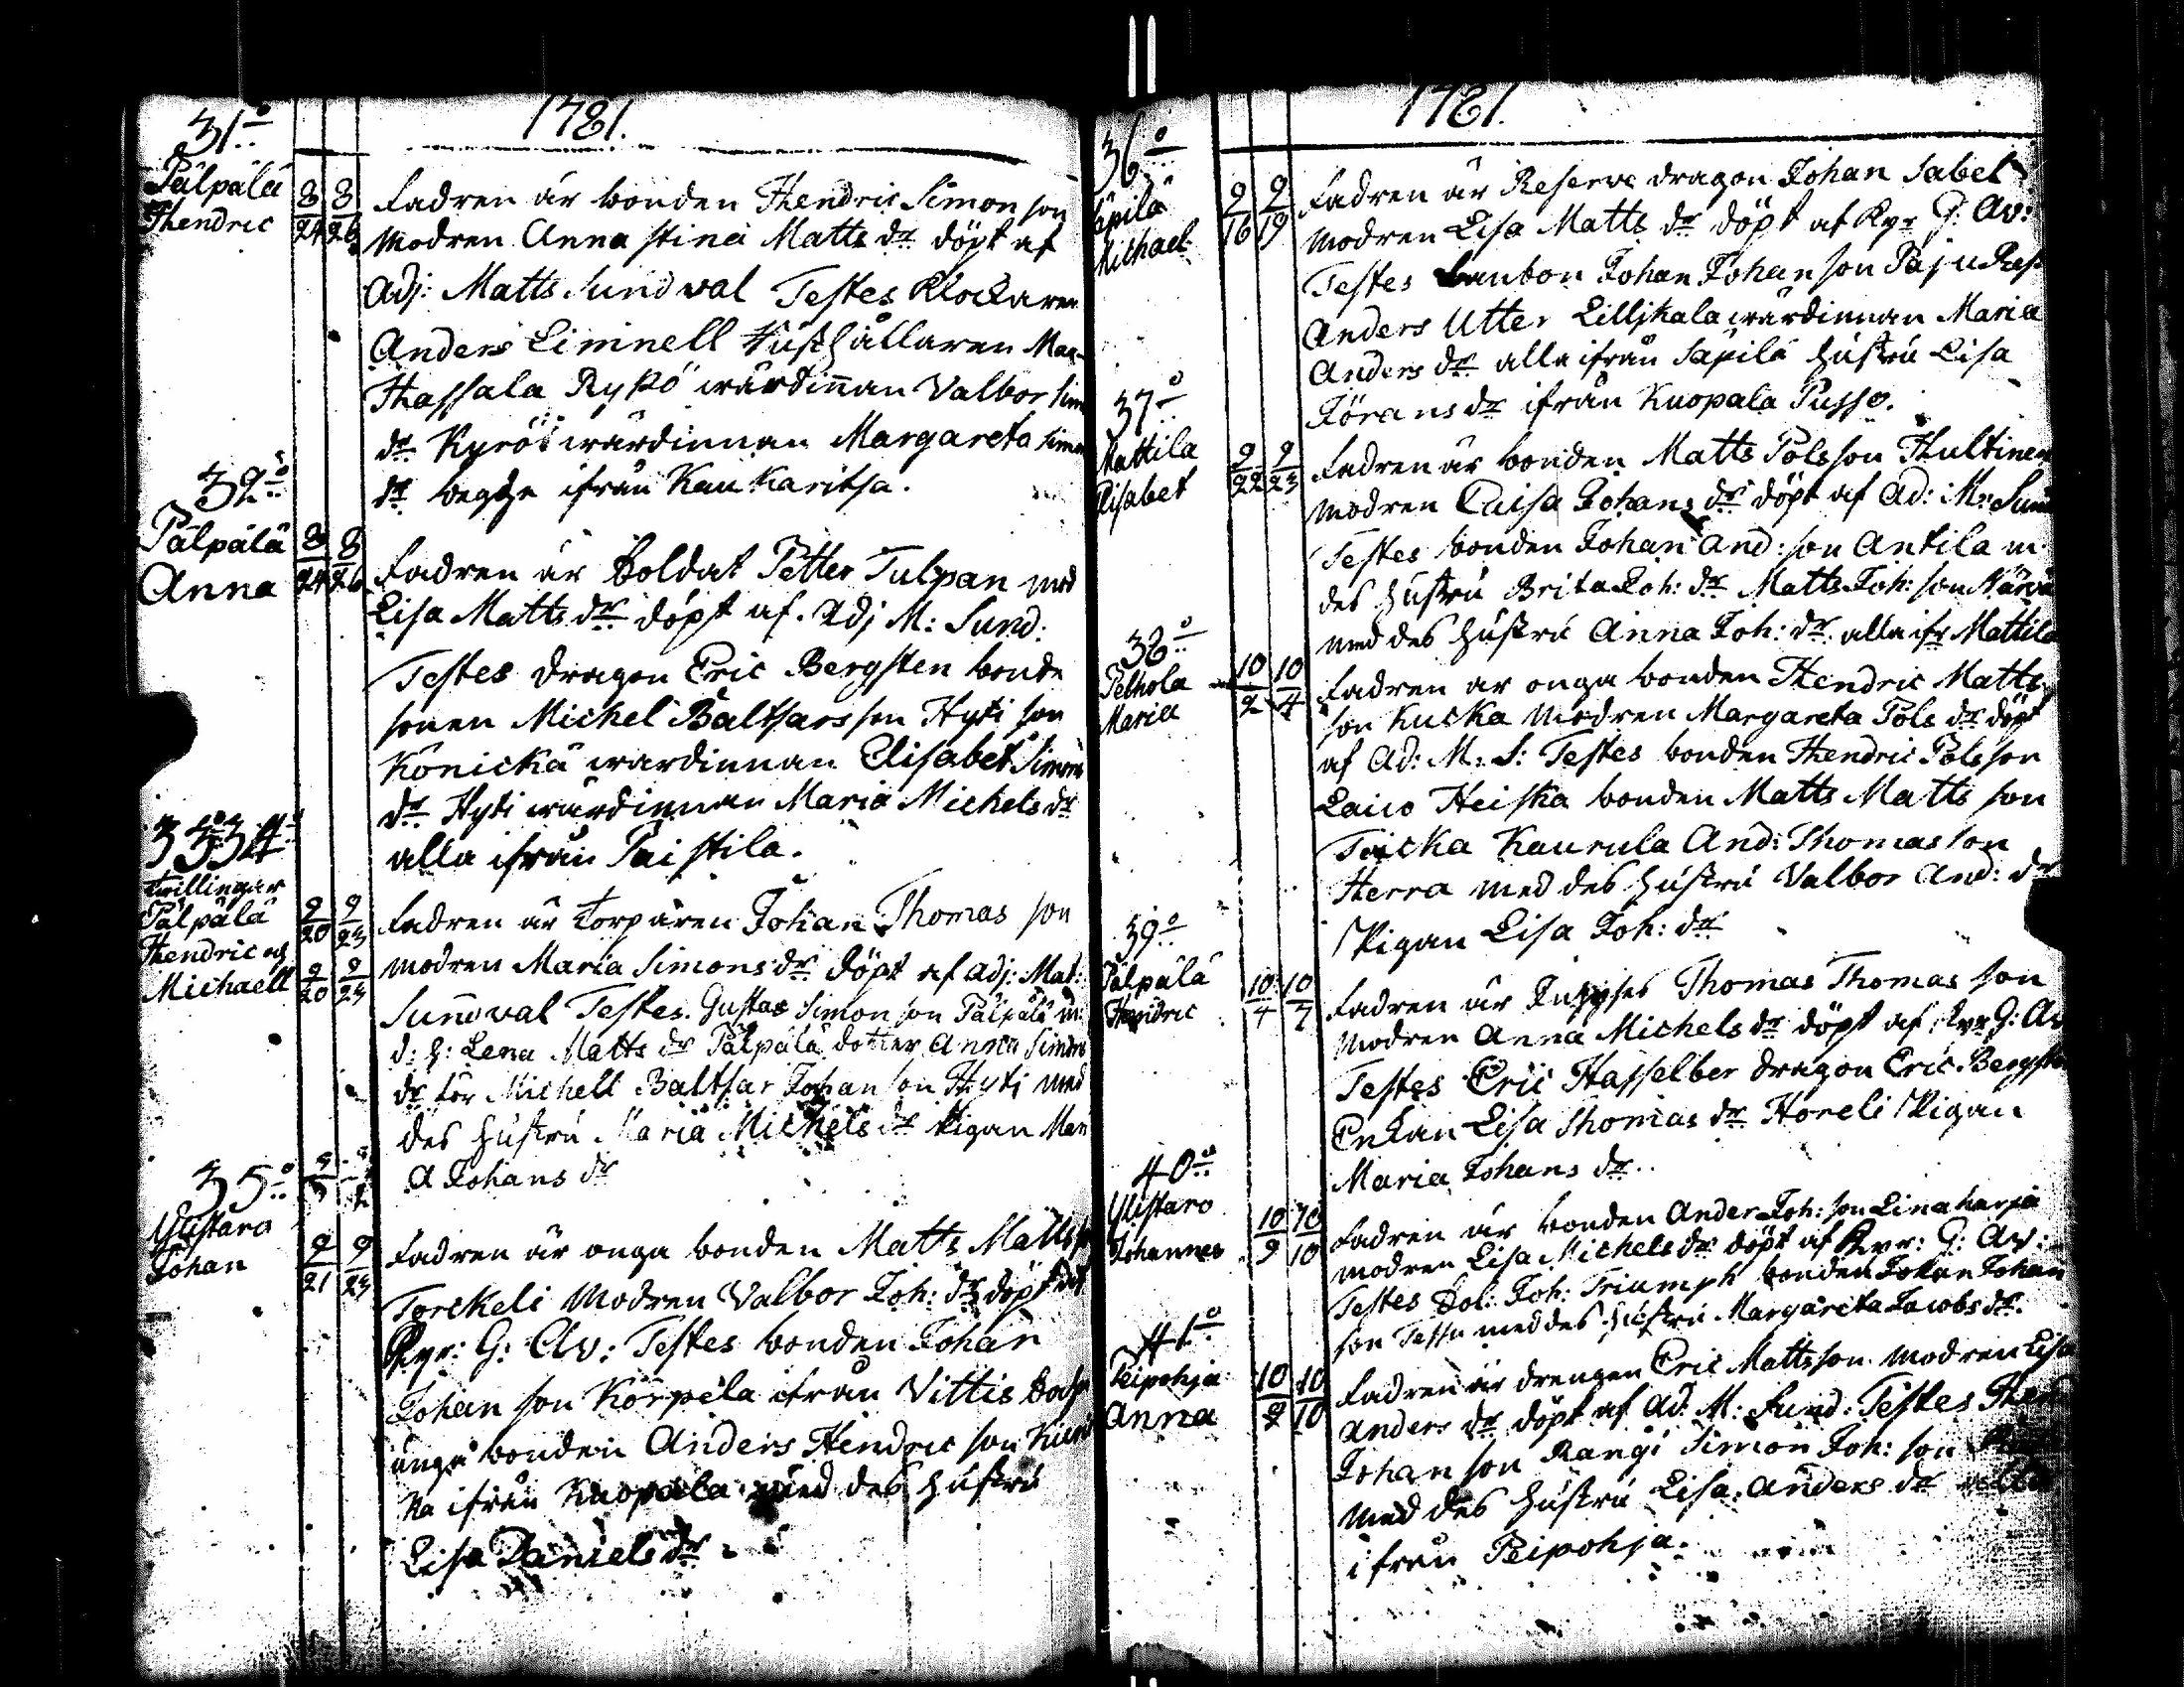 31o
1781.
Pälpälä
Hendric
8 8
24 26
Fadren är bonden Hendric Simon son
modren Anna Stina Matts dr döpt af
Adj: Matts Sundwal Testes Klockaren
Anders Limnell Rusthållaren Mar
Hassala Rykö wärdinnan Valbor Sim
dr Kyrös wärdinnan Margareta Simo
dr begge ifrån Kaukaritsa.
32o
Pälpälä
Anna
8 8
24 26
Fadren är Soldat Petter Tulpan mod
Lisa Matts dr döpt af Adj M: Sund:
Testes dragon Eric Bergsten bonde
sonen Mickel Baltsars son Hyti son
Könickä wärdinnan Elisabet Simons
dr Hyti wärdinnan Maria Michels dr
alla ifrån Paistila.
33o 34o
twillingar
Pälpälä
Hendric och
Michaell
9 9
20 23
9 9
20 23
Fadren är torparen Johan Thomas son
modren Maria Simons dr döpt af adj: Mat:
Sundwal Testes. Gustas Simon son Pälpälä m:
d: h: Lena Matts dr Pälpälä dotter Anna Simons
dr för Michell Baltsar Johan son Hyti med
des hustru Maria Michels dr Pigan Mari
A Johans dr
35o
Yllistaro
Johan
9 9
21 23
Fadren är onga bonden Matts Matts s
Torckeli modren Valbor Joh: dr döpt af
Kpr: G: Av: Testes bonden Johan
Johan son Korpela ifrån Vittis
unga bonden Anders Hendric son
ka ifrån Kuopala med des hustru
Lisa Daniels dr
1781.
36o
Säpilä
Michael
9 9
16 19
Fadren är Reserve dragon Johan Sabel
modren Lisa Matts dr döpt af Kpr G: Av:
Testes bonden Johan Johan son Paju Res
Anders Utter Lilljkala wärdinnan Maria
Anders dr alla ifrån Säpilä hustru Lisa
Jörans dr ifrån Kuopala Pusso.
37o
Mattila
Elisabet
9 9
22 23
Fadren är bonden Matts Pols son Hultinen
modren Caisa Johans dr döpt af Ad: M: Sun
Testes bonden Johan And: son Antila m:
des hustru Brita Joh: dr Matts Joh: son Närvä
med des hustru Anna Joh: dr alla ifr Mattila
38o
Pelhola
Maria
10 10
2 4
Fadren är onga bonden Hendric Matts
son Kucka modren Margareta Pols dr döpt
af Ad: M: S: Testes bonden Hendric Pols son
Laiio Heiska bonden Matts Matts son
Tricka Kaurula And: Thomas son
Herra med des hustru Valbor And: dr
Pigan Lisa Joh: dr
39o
Pälpälä
Hendric
10 10
4 7
Fadren är Thomas Thomas son
modren Anna Michels dr döpt af Kpr G: Av
Testes Eric Hasselber dragon Eric Bergste
Enkan Lisa Thomas dr Horeli Pigan
Maria Johans dr.
40o
Yllistaro
Johannes
10 10
9 10
Fadren är bonden Ander Joh: son Linaharja
modren Lisa Michels dr döpt af Kpr: G: Av:
Testes Sol: Joh: Triumph bonden Johan Johan
son Tessu med des hustru Margareta Jacobs dr.
41o
Peipohja
Anna
10 10
9 10
Fadren är drengen Eric Matts son modren Lisa
Anders dr döpt af Ad: M: Sund: Testes
Johan son Rangi Simon Joh: son
med des hustru Lisa Anders dr
ifrån Peipohja.